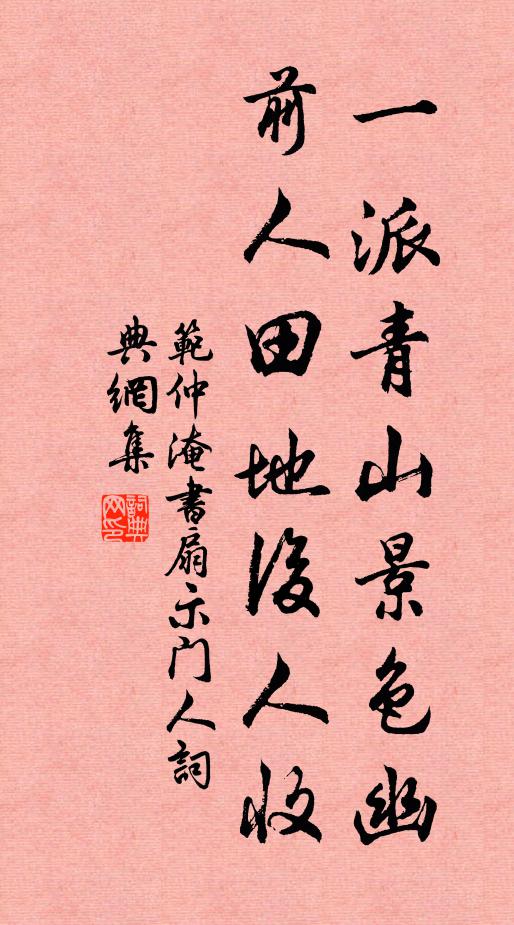 一派青山景色幽
前人田地後人收
範仲淹書扇示门人詞
典網集
詞典
网印